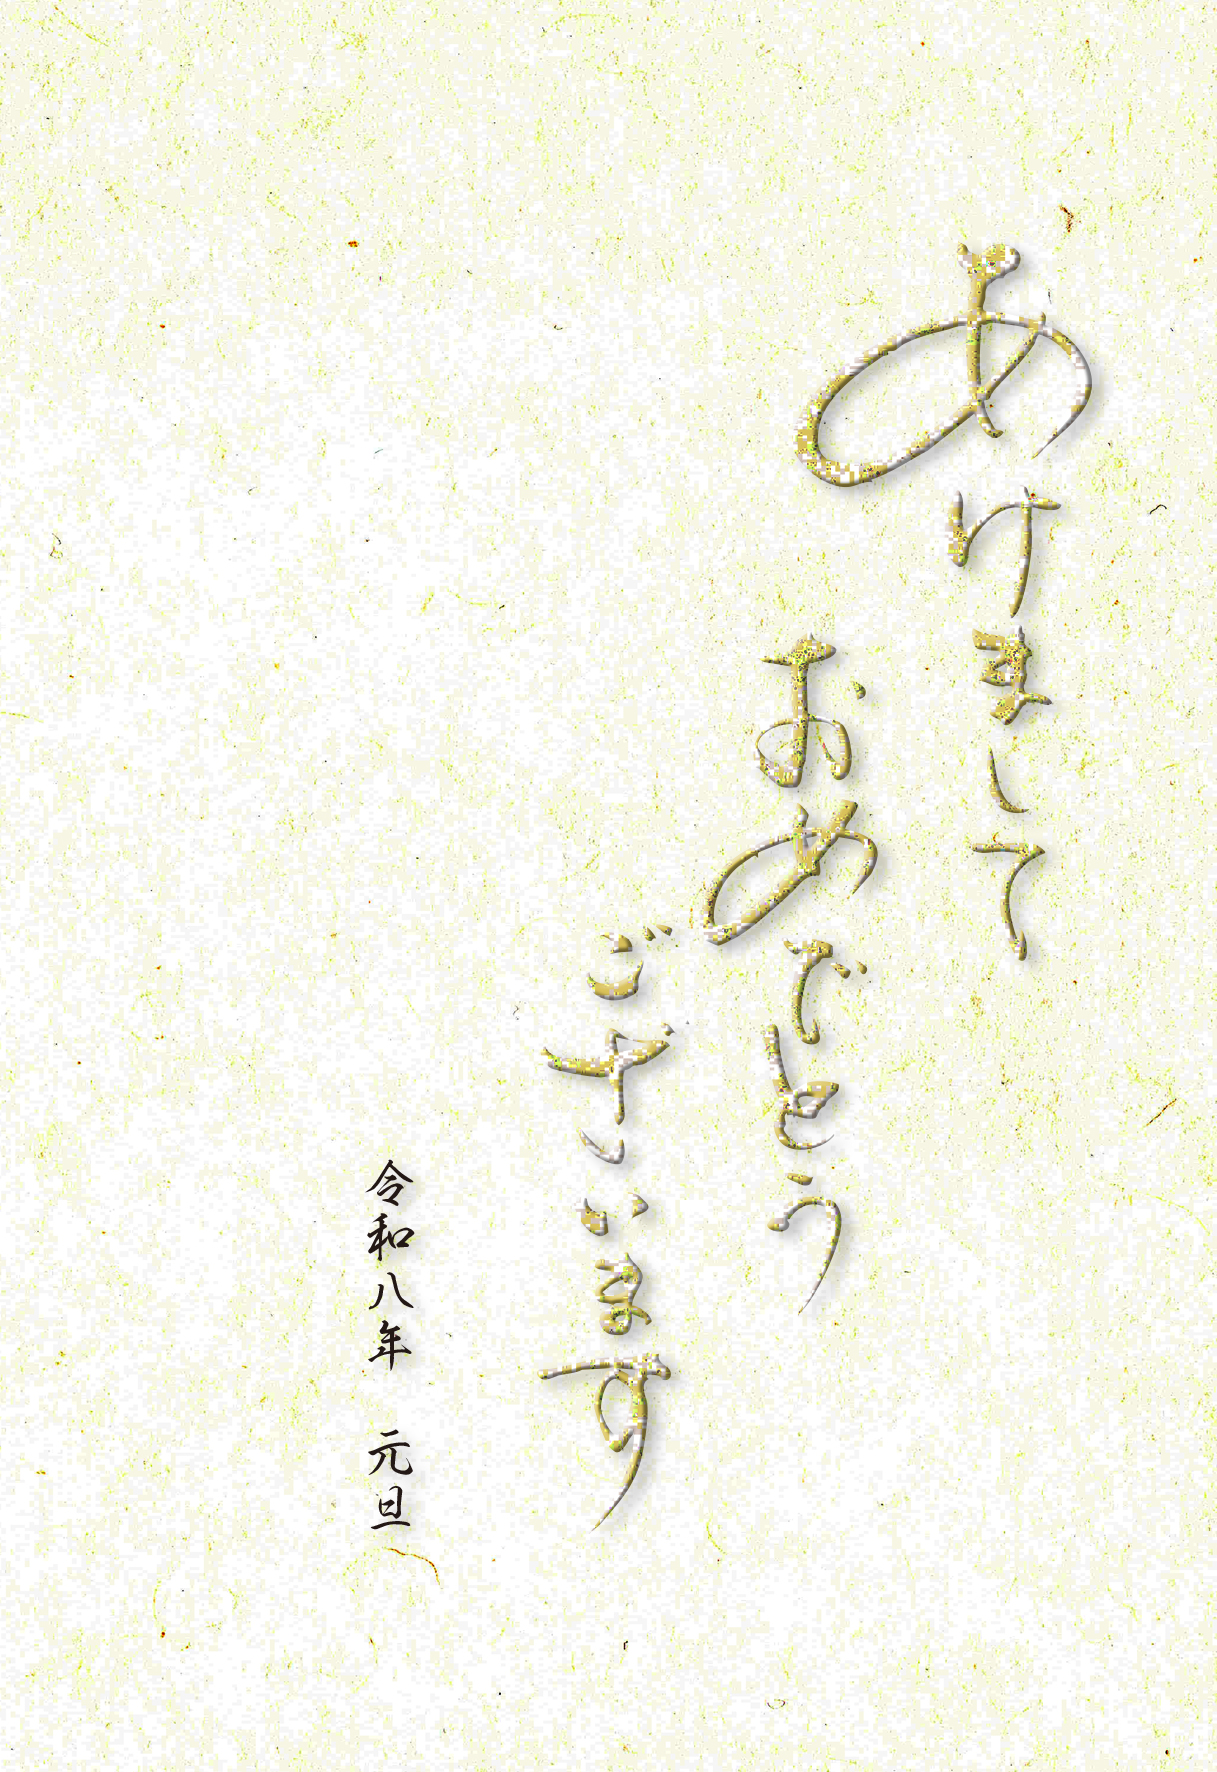 あけまして
おめでとう
ございます
令和八年　元旦